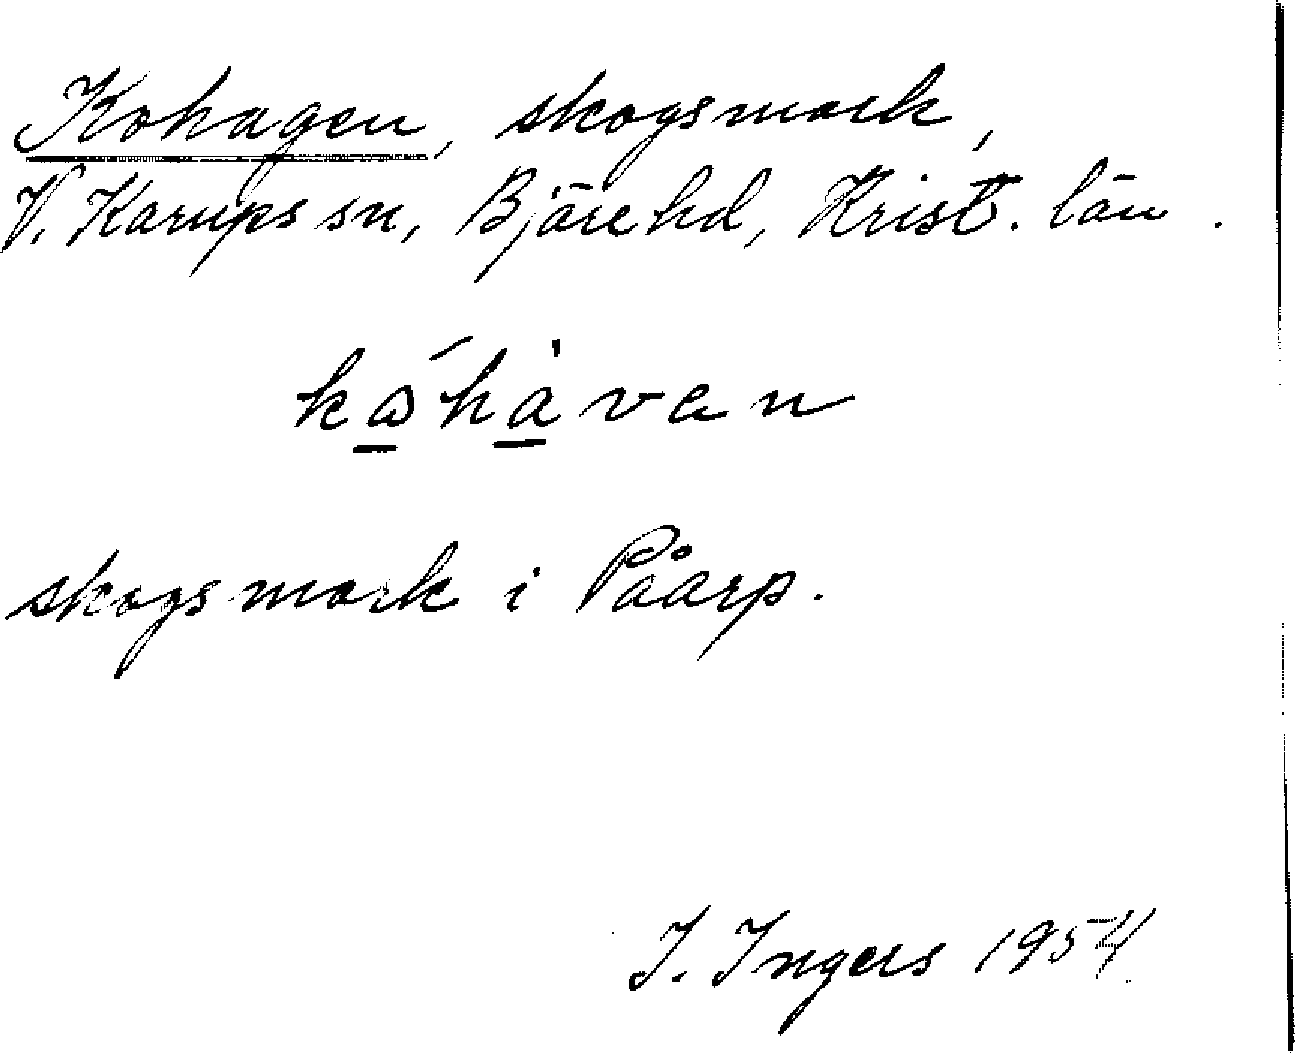 Kohagen, skogsmark,
V. Karups sn, Bjäre hd, Krist. län.
kɷ́hȧven
skogsmark i Påarp.
I. Ingers 1954.